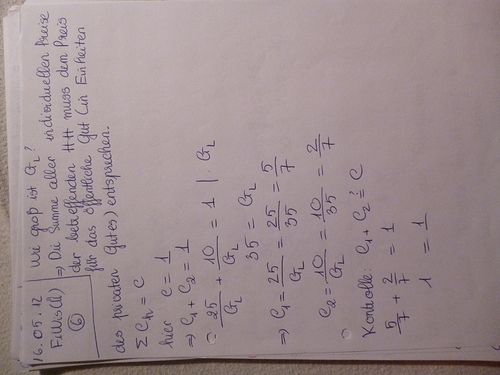 16.05.12
FiWis(ü)
⑥
Wie groß ist G_L?
⇒ Die Summe aller individuellen Preise
der betreffenden HH muss dem Preis
für das öffentliche Gut (in Einheiten
des privaten Gutes) entsprechen.
Σ C_h = C
hier C = 1
⇒ C₁ + C₂ = 1
25/G_L + 10/G_L = 1 | · G_L
35 = G_L
⇒ C₁ = 25/G_L = 25/35 = 5/7
C₂ = 10/G_L = 10/35 = 2/7
Kontrolle: C₁ + C₂ ≟ C
5/7 + 2/7 = 1
1 = 1